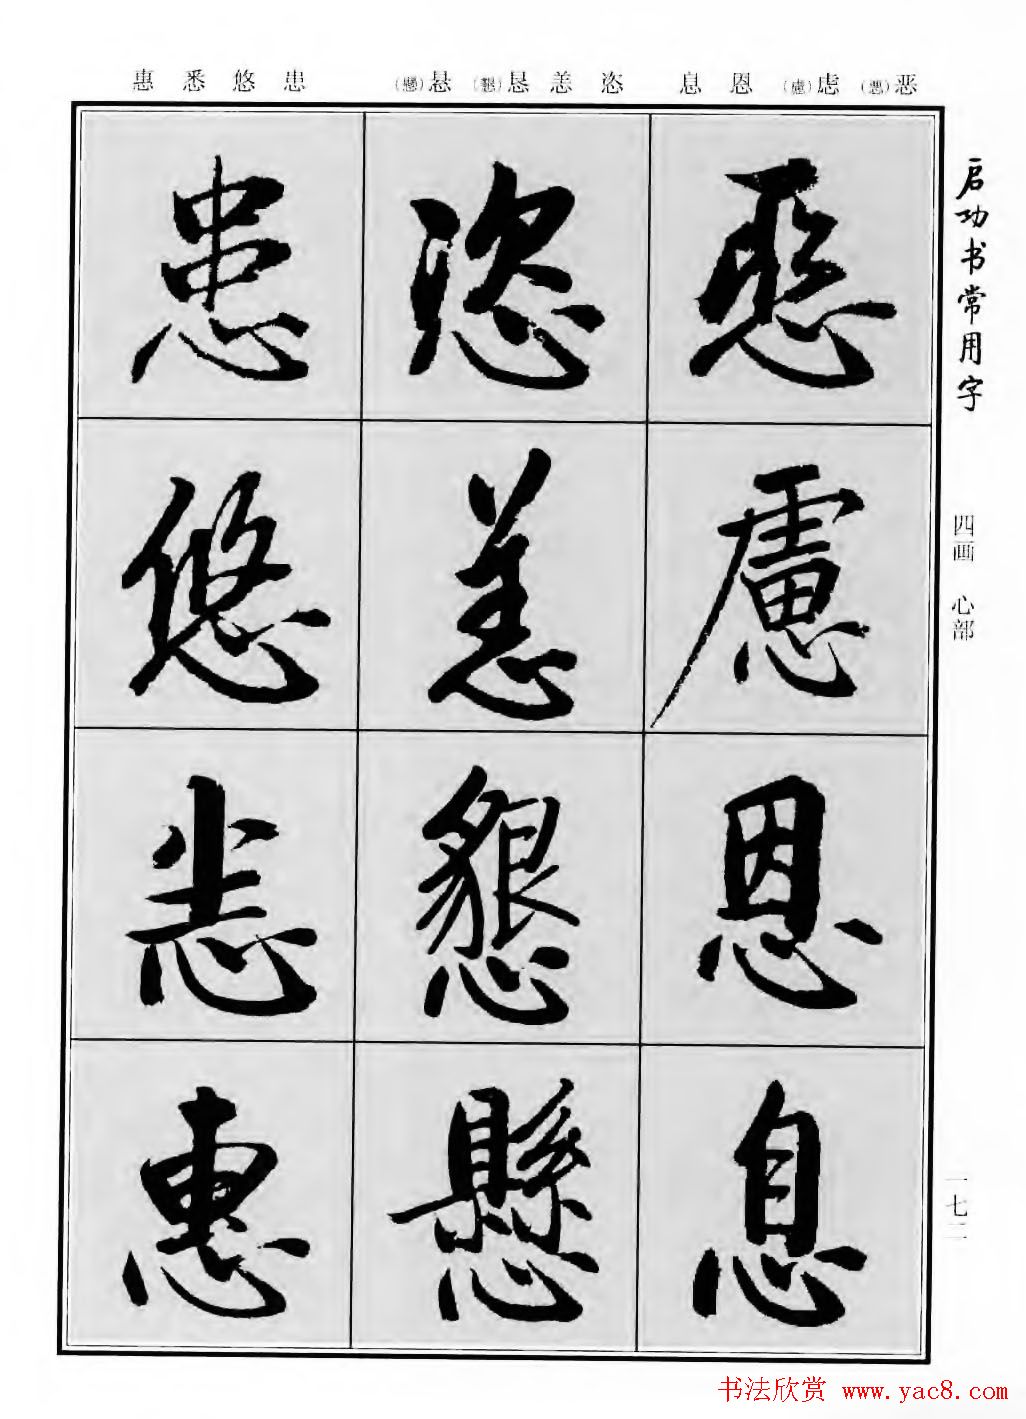 惠 悉 悠 患 (懸)悬 (懇)恳 恙 恣 息 恩 (慮)虑 (惡)恶
启功书常用字
四画 心部
一七二
恶 恣 患
慮 恙 悠
恩 懇 悉
息 懸 惠
书法欣赏 www.yac8.com